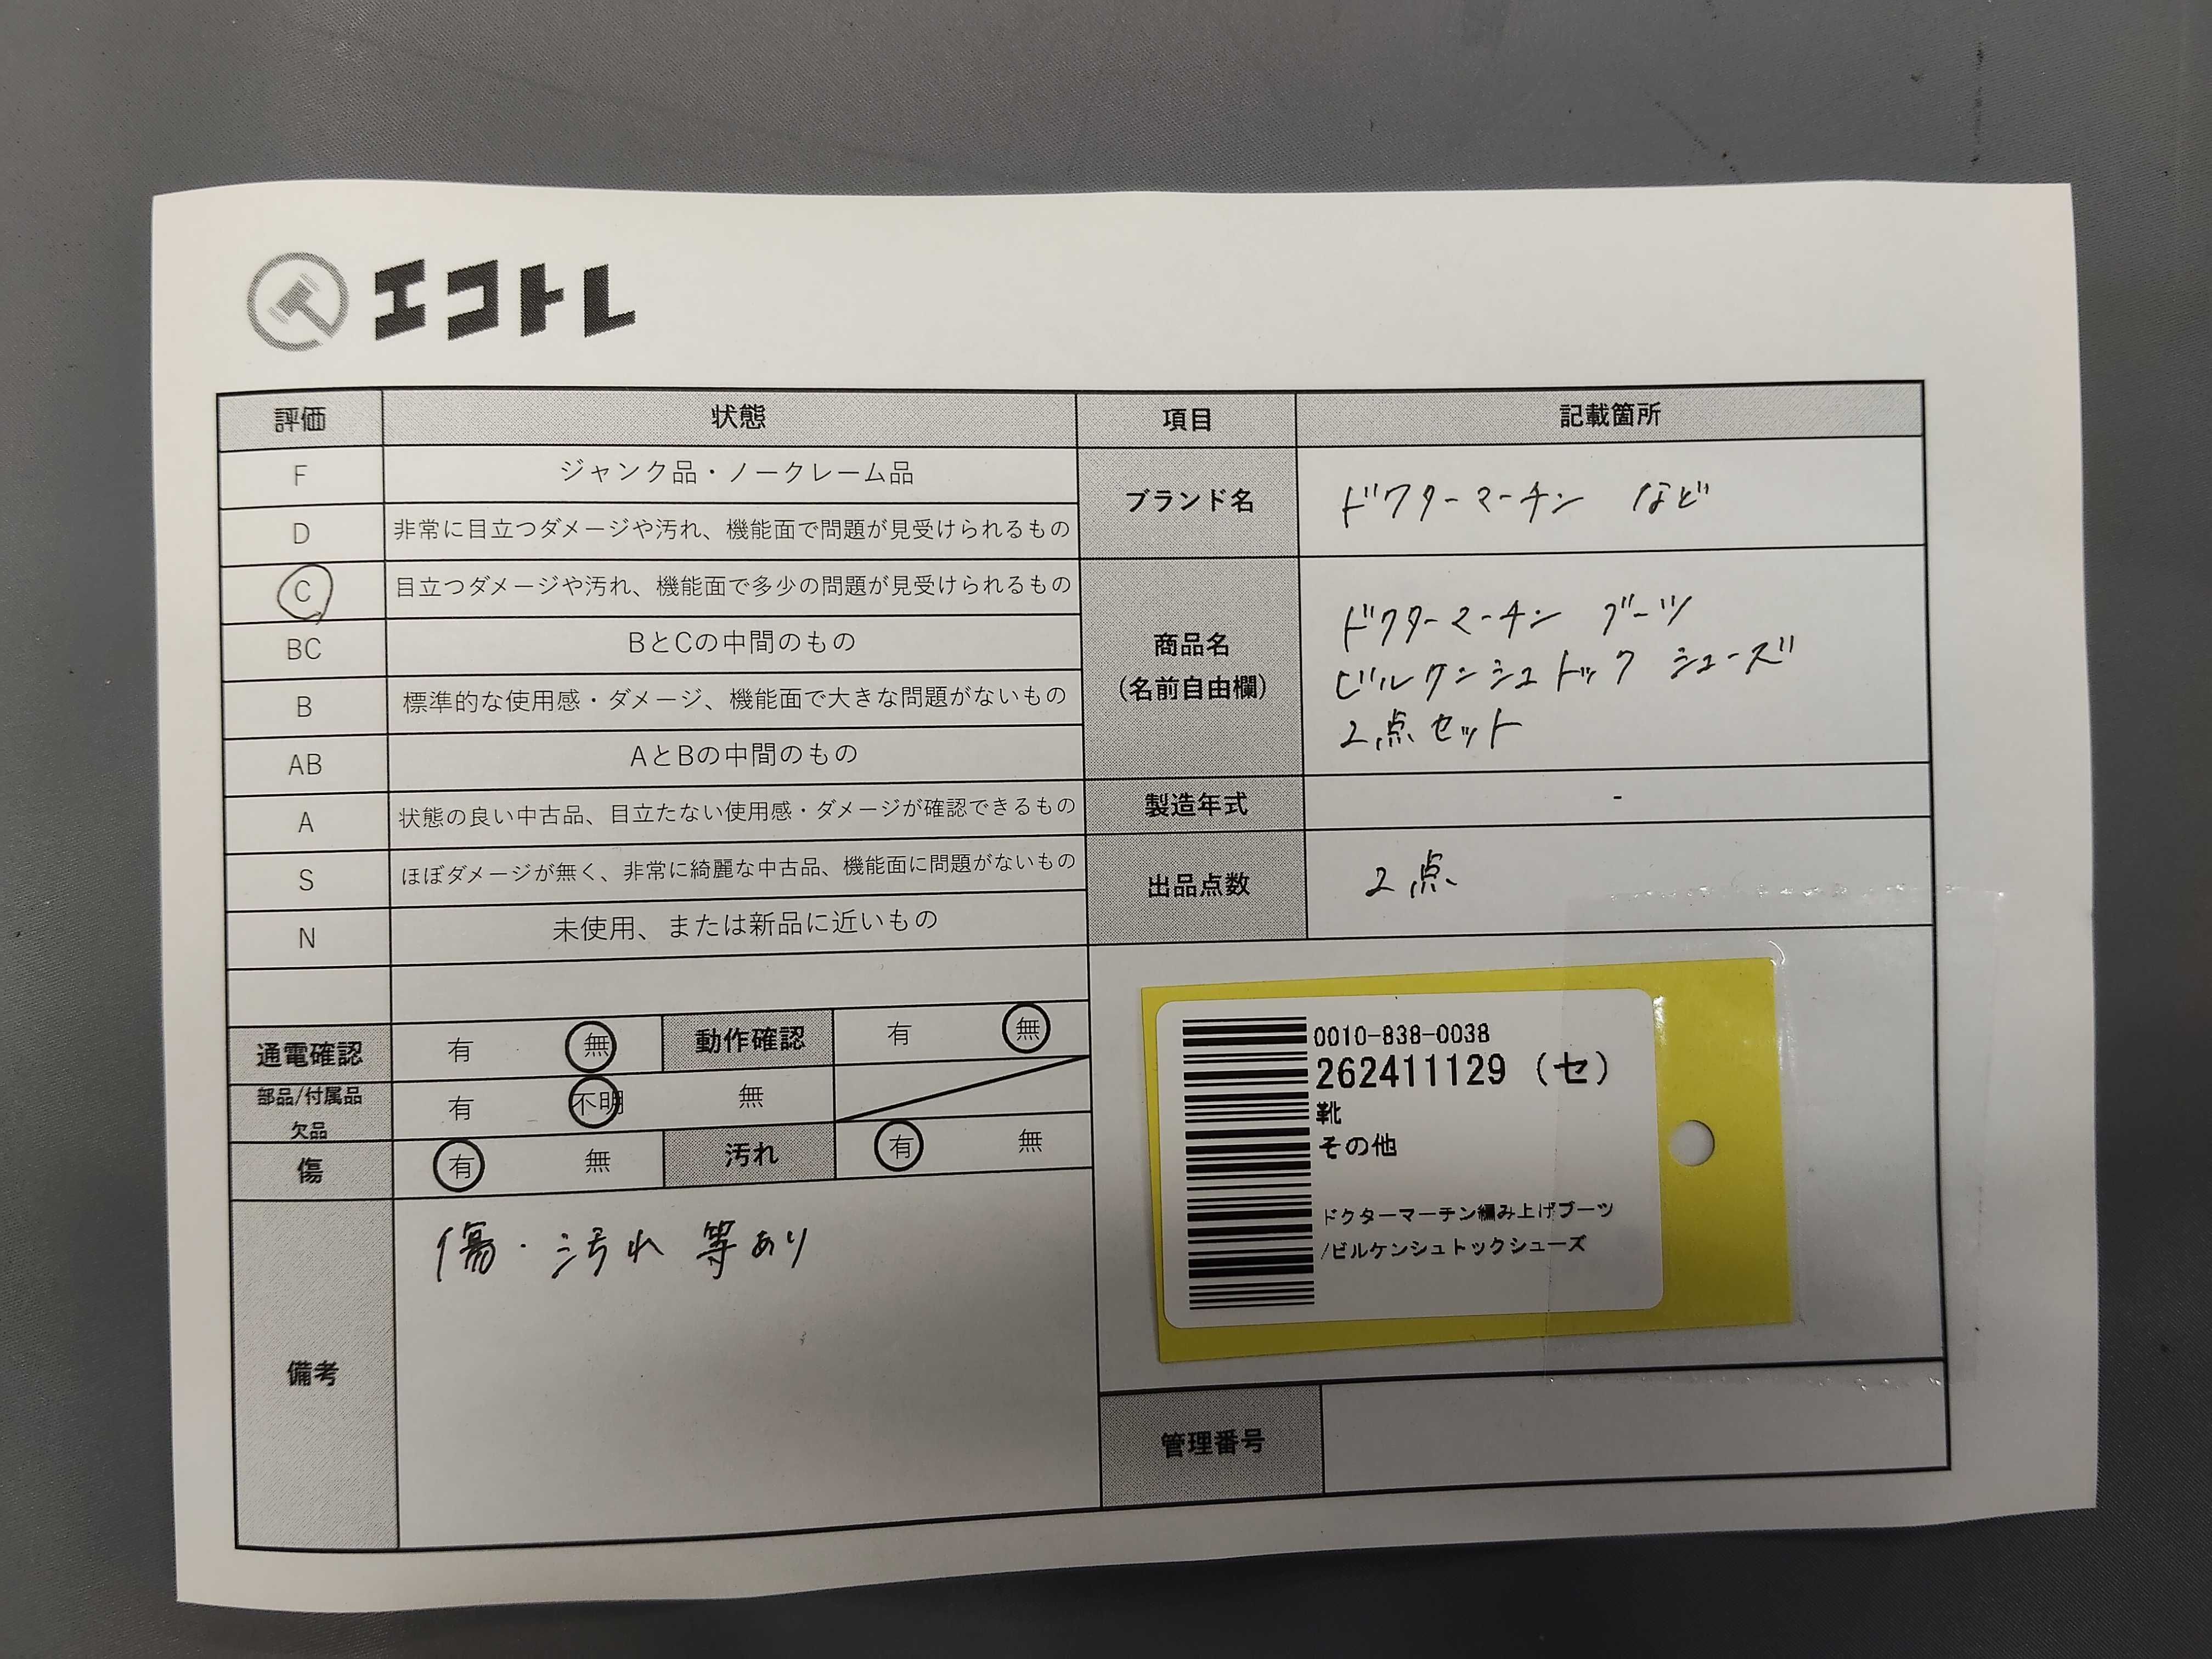 エコトレ
評価 状態 項目 記載箇所
F ジャンク品・ノークレーム品
D 非常に目立つダメージや汚れ、機能面で問題が見受けられるもの
ブランド名 ドクターマーチン など
C 目立つダメージや汚れ、機能面で多少の問題が見受けられるもの
BC BとCの中間のもの
B 標準的な使用感・ダメージ、機能面で大きな問題がないもの
AB AとBの中間のもの
商品名
(名前自由欄)
ドクターマーチン ブーツ
ビルケンシュトック シューズ
2点セット
A 状態の良い中古品、目立たない使用感・ダメージが確認できるもの
製造年式 -
S ほぼダメージが無く、非常に綺麗な中古品、機能面に問題がないもの
N 未使用、または新品に近いもの
出品点数 2点
通電確認 有 無 動作確認 有 無
部品/付属品
欠品
有 不明 無
傷 有 無 汚れ 有 無
備考
傷・汚れ 等あり
0010-838-0038
262411129 (セ)
靴
その他
ドクターマーチン編み上げブーツ
/ビルケンシュトックシューズ
管理番号